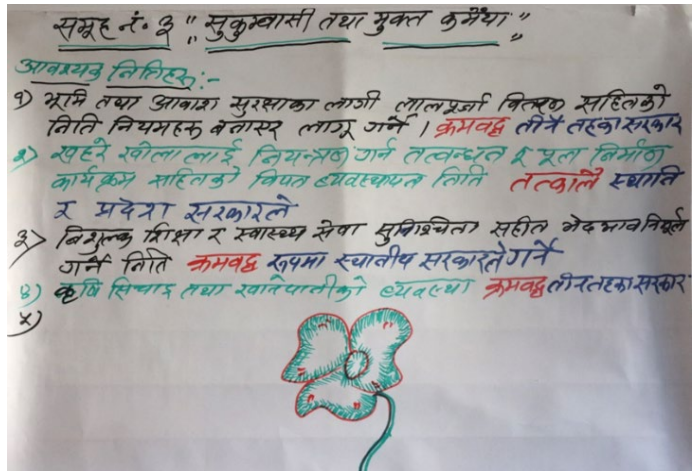 समूह नं. ३ "सुकुम्वासी तथा मुक्त कमैया"
आवश्यक नितिहरु:-
१) भूमि तथा आवाश सुरक्षाका लागी लालपूर्जा वितरण सहितको
निति नियमहरु बनाएर लागू गर्ने । क्रमवद्ध तीनै तहका सरकार
२) खहरे खोला लाई नियन्त्रण गर्न तटवन्धन र पूल निर्माण
कार्यक्रम सहितको विपत व्यवस्थापन निति तत्कालै स्थानि
र प्रदेश सरकारले
३) निशुल्क शिक्षा र स्वास्थ्य सेवा सुनिश्चितता सहीत भेदभाव निर्मूल
गर्ने निति क्रमवद्ध रूपमा स्थानीय सरकारले गर्ने
४) कृषि सिंचाइ तथा खानेपानीको व्यवस्था क्रमवद्ध तीन तहका सरकार
५)